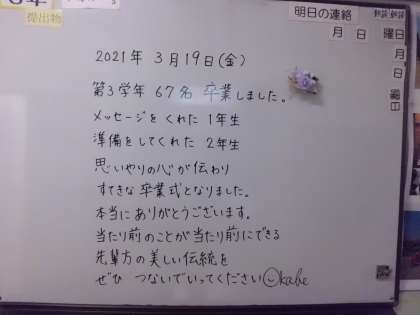 提出物
明日の連絡
月 日 曜日
月
日
2021年 3月19日(金)
第3学年 67名 卒業しました。
メッセージをくれた 1年生
準備をしてくれた 2年生
思いやりの心が伝わり
すてきな卒業式となりました。
本当にありがとうございます。
当たり前のことが当たり前にできる
先輩方の美しい伝統を
ぜひ つないでいってください